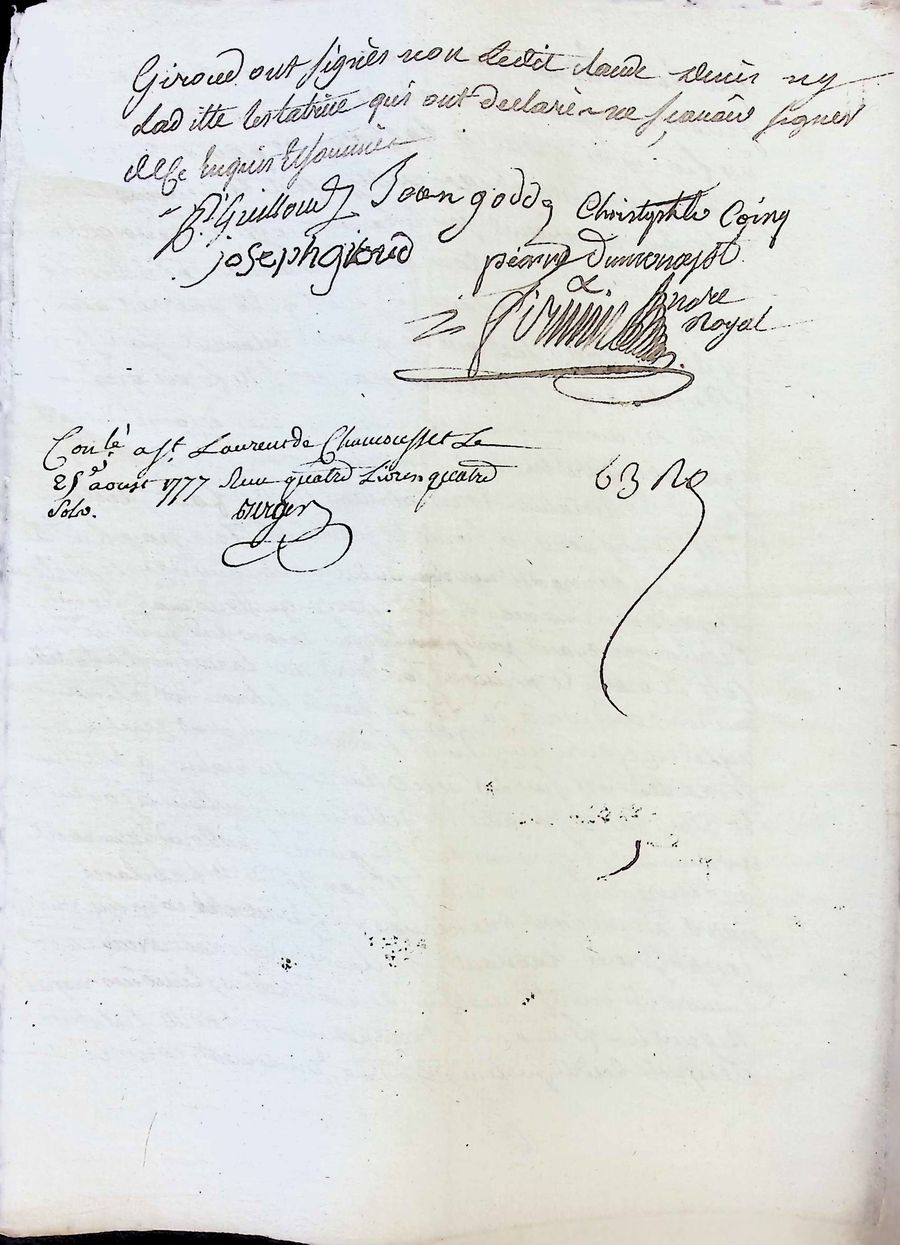 Giroud ont signès non ledit claude denis ny
laditte testatrice qui ont declaré ne sçavoir signer
de ce enquis et sommés
P. Guilloud Jean godde Christophle Coing
joseph giroud pierre Dumonajot
andre
royal
Con.lé a St. Laurent de Chamousset Le
25e aoust 1777 Reçu quatre Livres quatre
Sols. Burger
63 Ro